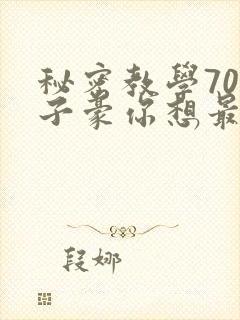 秘密教学70
子豪你想最
段娜